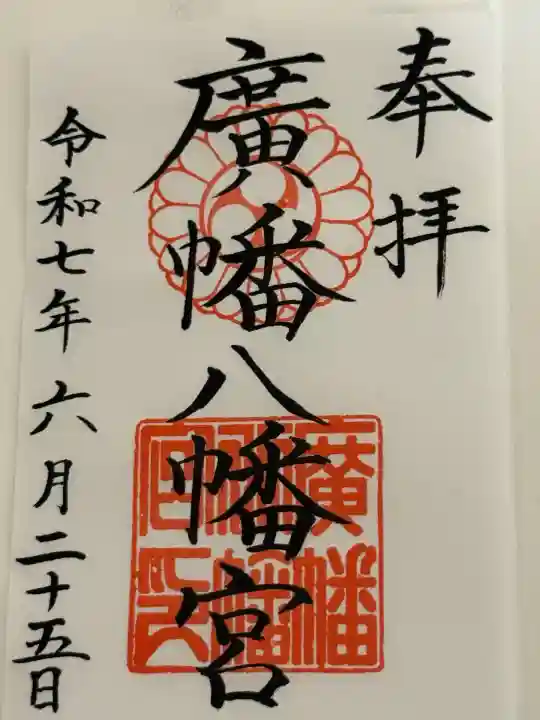 奉拝
廣幡八幡宮
廣幡
八幡
宮印
令和七年六月二十五日